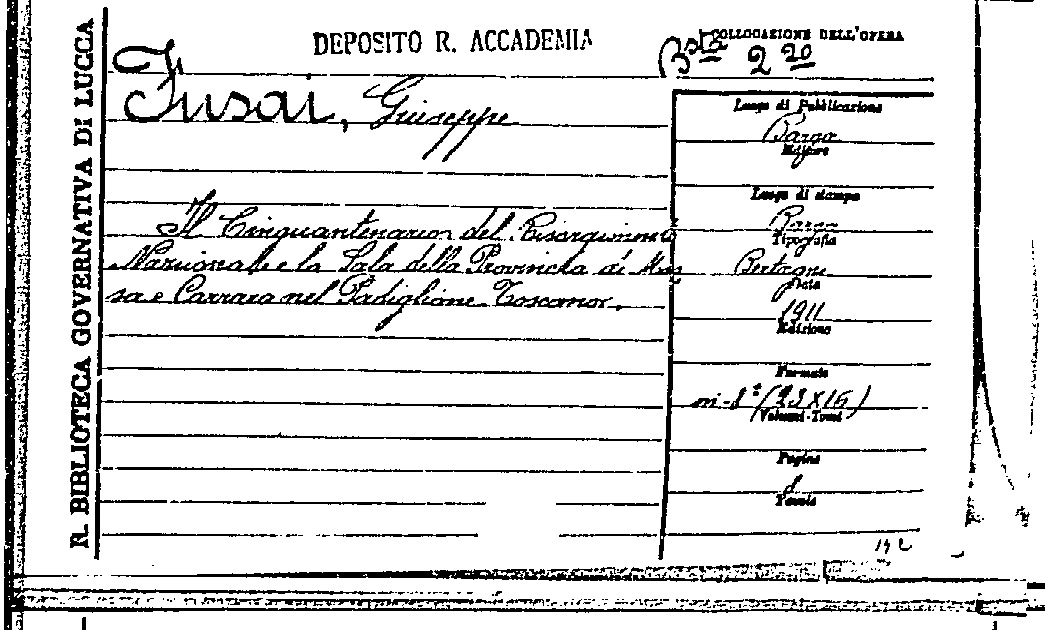 R. BIBLIOTECA GOVERNATIVA DI LUCCA
DEPOSITO R. ACCADEMIA
COLLOCAZIONE DELL'OPERA
Bsta 2 20
Fusai, Giuseppe
Il Cinquantenario del Risorgimento
Nazionale e la Sala della Provincia di Mas
sa e Carrara nel Padiglione Toscano.
Luogo di Pubblicazione
Barga
Editore
Luogo di stampa
Barga
Tipografia
Bertagni
Data
1911
Edizione
Formato
in-8° (23X16)
Volumi-Tomi
Pagine
8
Tavole